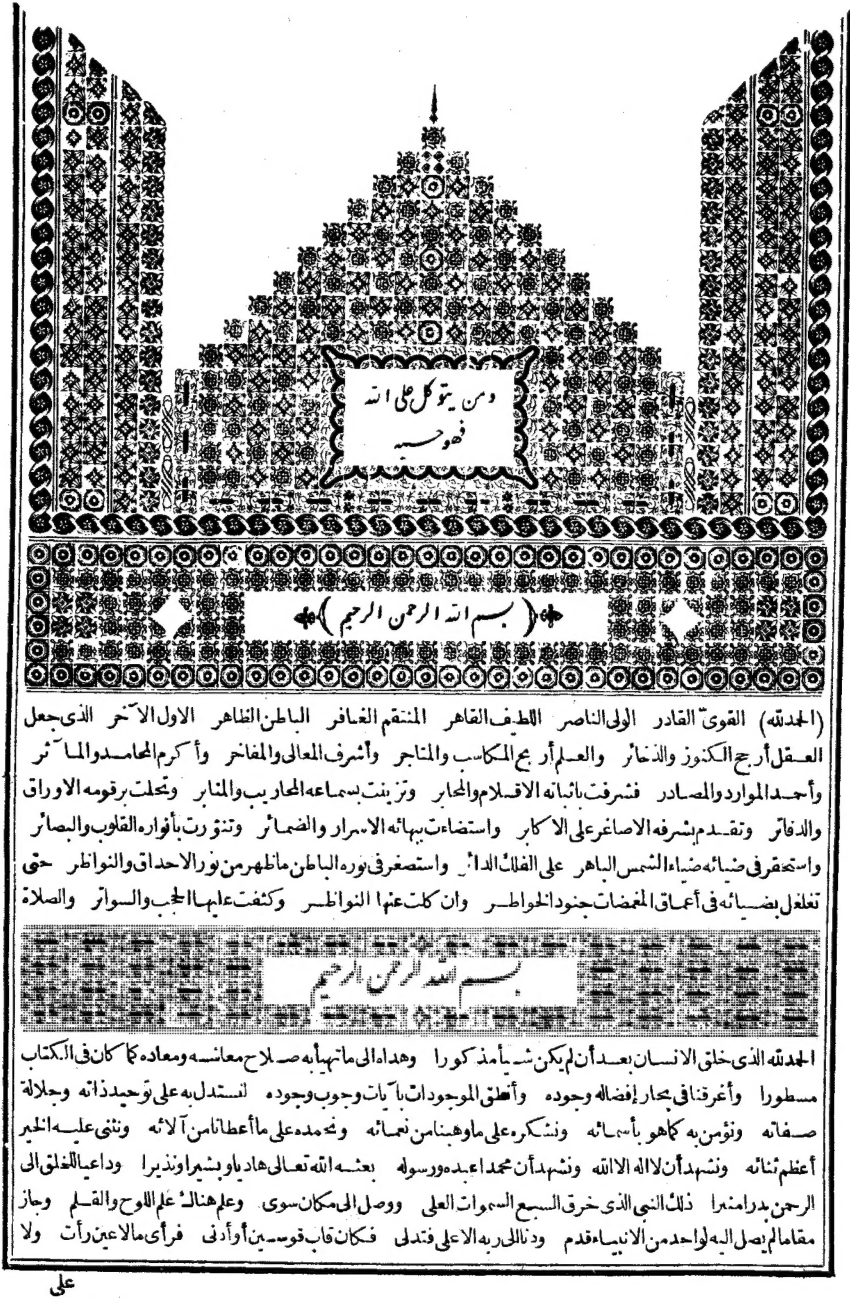 ومن يتوكل على الله
فهو حسبه
بسم الله الرحمن الرحيم
(الحمدلله) القوىّ القادر الولى الناصر اللطيف القاهر المنتقم الغافر الباطن الظاهر الاول الآخر الذى جعل
العقل أرجح الكنوز والذخائر والعلم أربح المكاسب والمتاجر وأشرف المعالى والمفاخر وأكرم المحامد والمآثر
وأحمد الموارد والمصادر فشرفت باثباته الاقلام والمحابر وتزينت بسماعه المحاريب والمنابر وتحلت برقومه الاوراق
والدفاتر وتقدم بشرفه الاصاغر على الاكابر واستضاءت ببهائه الاسرار والضمائر وتنوّرت بأنواره القلوب والبصائر
واستحقر فى ضيائه ضياء الشمس الباهر على الفلك الدائر واستصغر فى نوره الباطن ماظهر من نور الاحداق والنواظر حتى
تغلغل بضيائه فى أعماق المغمضات جنود الخواطر وان كلت عنها النواظر وكثفت عليها الحجب والسواتر والصلاة
بسم الله الرحمن الرحيم
الحمدلله الذى خلق الانسان بعد أن لم يكن شيأ مذكورا وهداه الى ما تهيأ به صلاح معاشه ومعاده كما كان فى الكتاب
مسطورا وأغرقنا فى بحار إفضاله وجوده وأنطق الموجودات بآيات وجوب وجوده لنستدل به على توحيد ذاته وجلالة
صفاته ونؤمن به كما هو بأسمائه ونشكره على ما وهبنا من نعمائه ونحمده على ما أعطانا من آلائه ونثنى عليه الخير
أعظم ثنائه ونشهد أن لا اله الا الله ونشهد أن محمدا عبده ورسوله بعثه الله تعالى هاديا وبشيرا ونذيرا وداعيا للخلق الى
الرحمن بدرا منيرا ذلك النبى الذى خرق السبع السموات العلى ووصل الى مكان سوى وعلم هناك علم اللوح والقلم وجاز
مقاما لم يصل اليه لواحد من الانبياء قدم ودنا الى ربه الاعلى فتدلى فكان قاب قوسين أو أدنى فرأى مالا عين رأت ولا
على